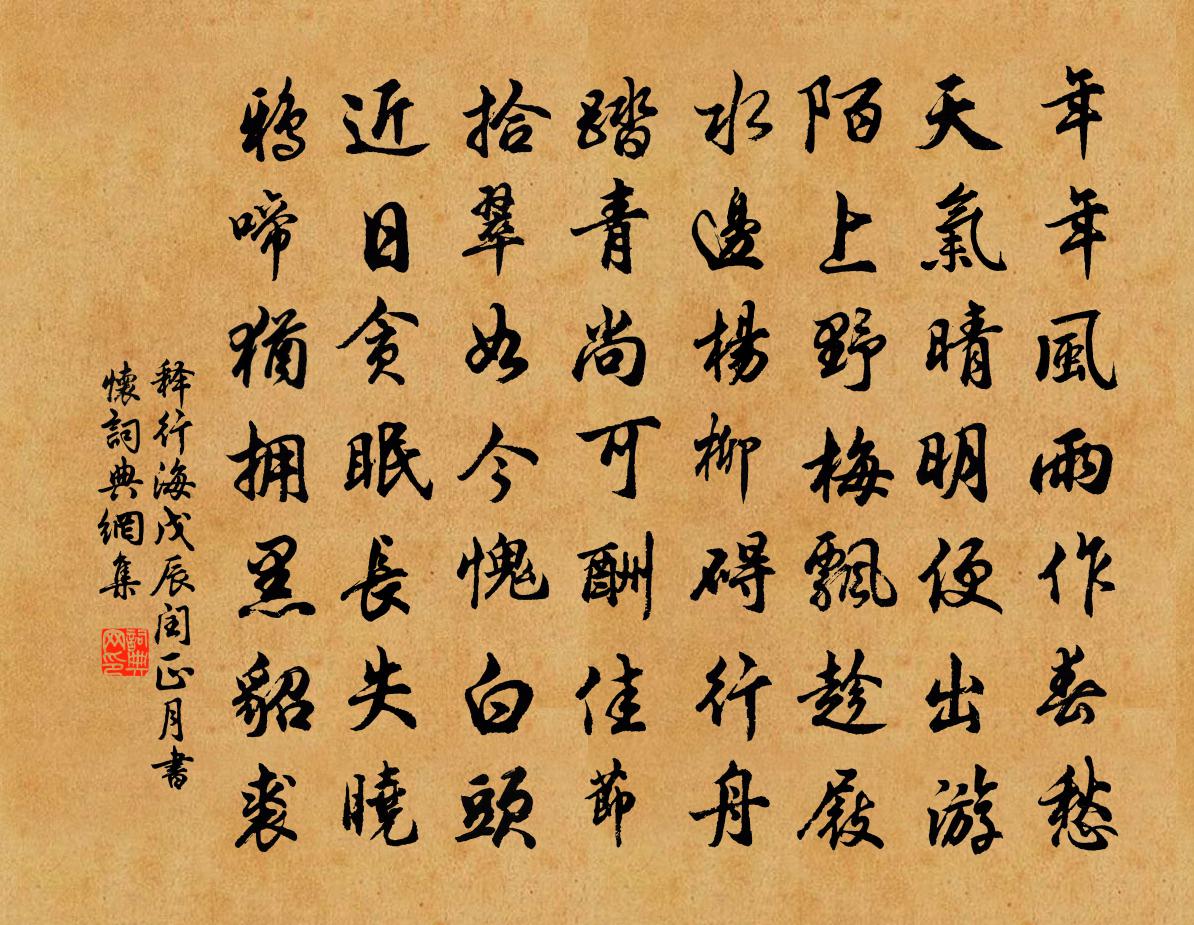 年年風雨作春愁
天氣晴明便出游
陌上野梅飄趁屐
水邊楊柳碍行舟
踏青尚可酬佳節
拾翠如今愧白頭
近日贪眠長失曉
鴉啼猶拥黑貂裘
释行海戊辰闰正月書
懷詞典網集
詞典网印